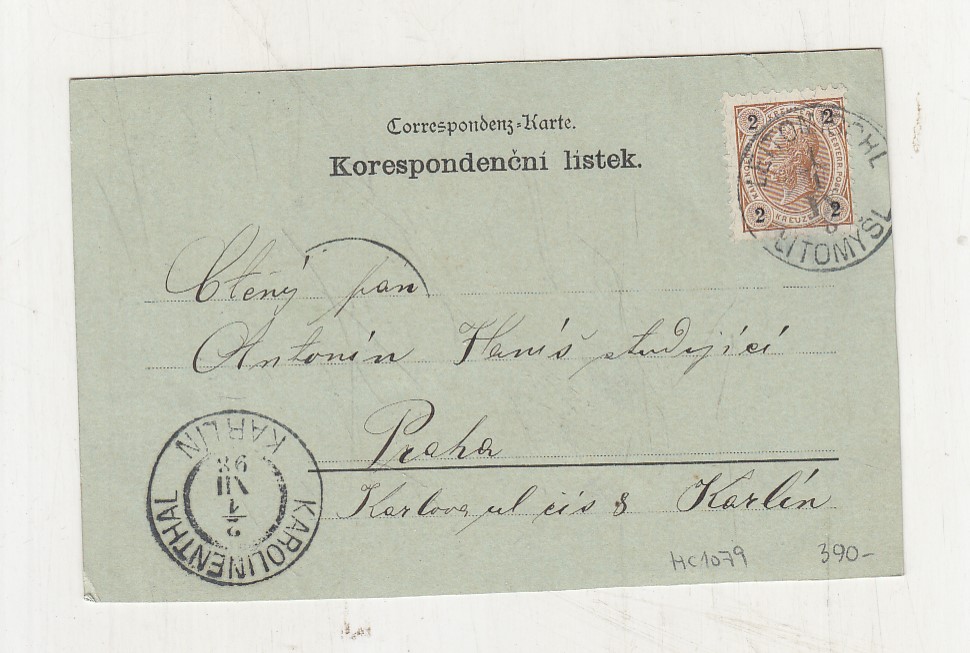 Correspondenz-Karte.
Korespondenční lístek.
2 2
2 2
KREUZER
LITOMYŠL
Ctěný pán
Antonín Haniš studující
Praha
Karlova ul čís 8 Karlín
KAROLINENTHAL
KARLÍN
98
VII
HC1079
390-